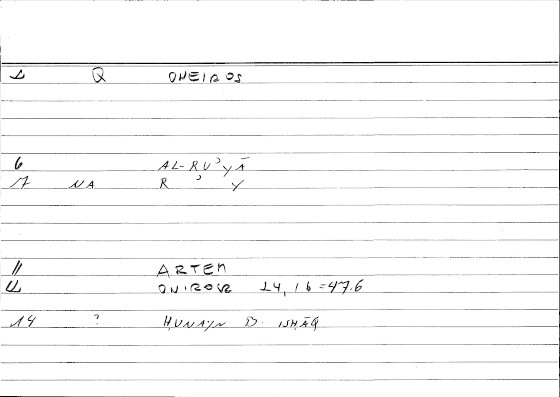 1 Q ONEIROS
6 AL-RUʾYĀ
7 NA R ʾ Y
11 ARTEM
12 ONIROCR 14,16=47.6
14 ? ḤUNAYN B. ISḤĀQ